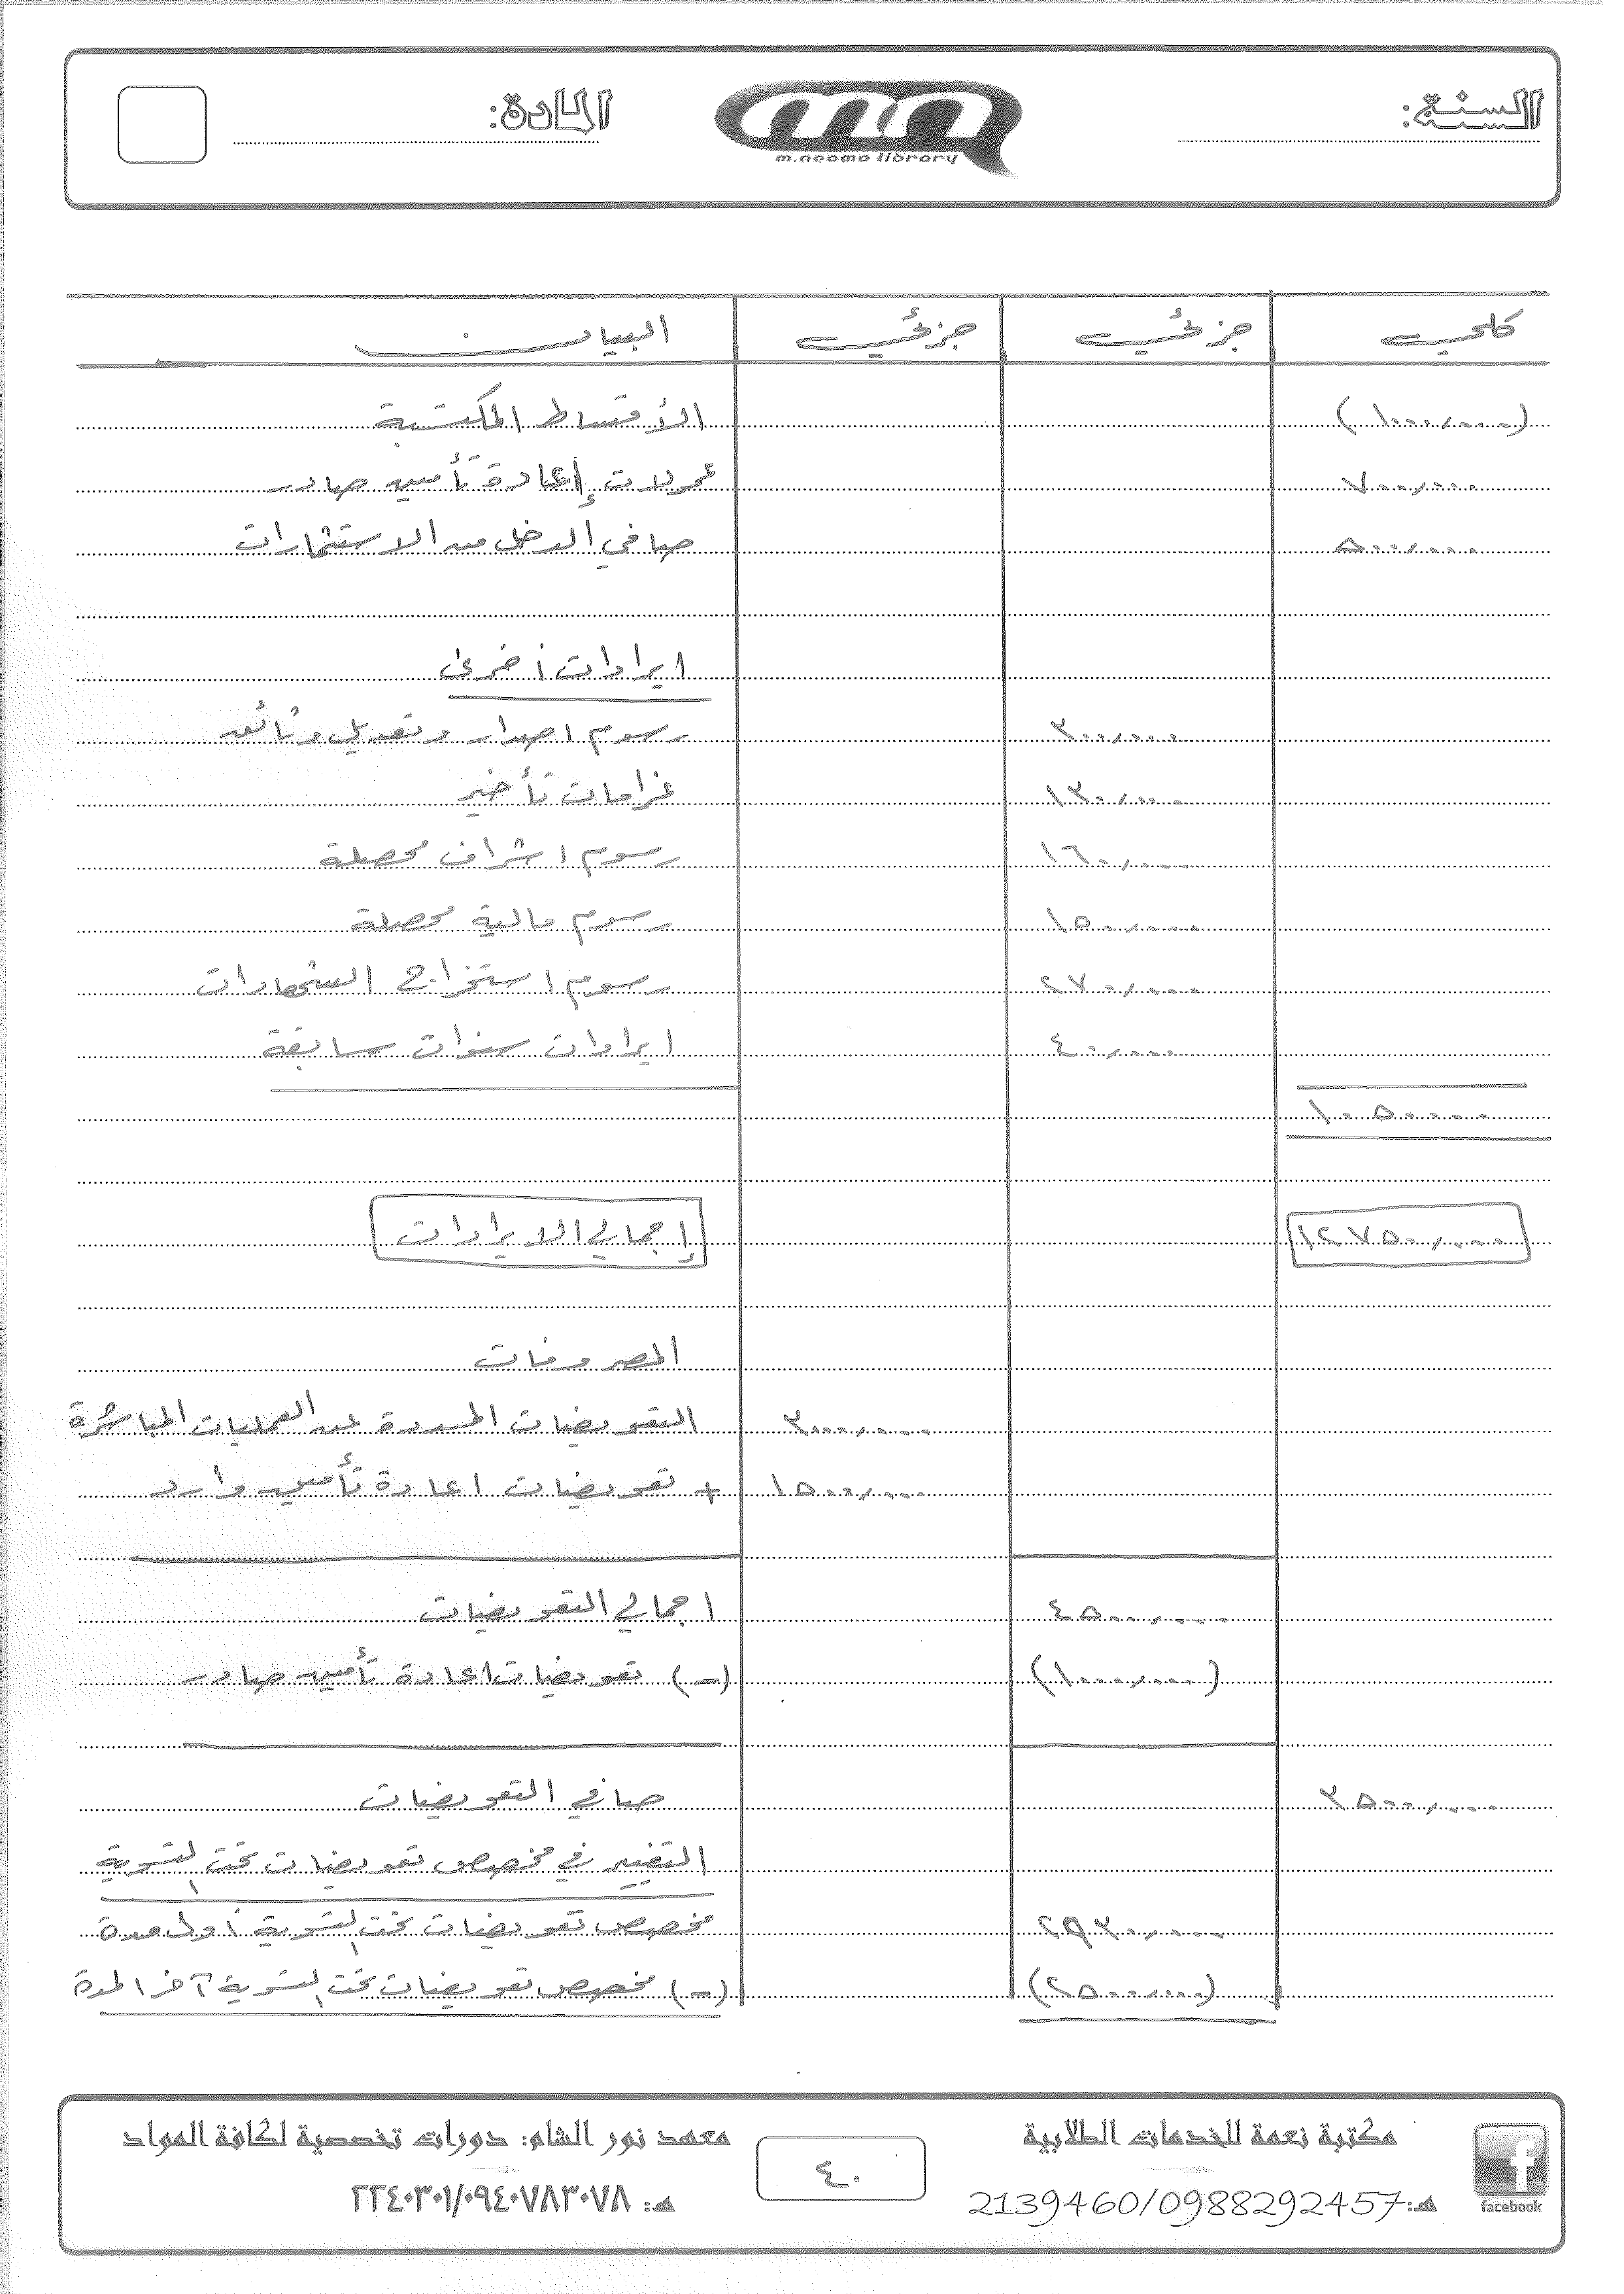 السنة:
mn
m.neoma library
المادة:
كلي جزئي جزئي البيان
(١٠٠٠٠٠٠) الأقساط المكتسبة
٧٠٠,٠٠٠ عمولات إعادة تأمين صادر
٥٠٠,٠٠٠ صافي الدخل من الاستثمارات
ايرادات أخرى
٣٠٠,٠٠٠ رسوم اصدار وتعديل وثائق
١٣٠,٠٠٠ غرامات تأخير
١٦٠,٠٠٠ رسوم اشراف محصلة
١٥٠,٠٠٠ رسوم مالية محصلة
٢٧٠,٠٠٠ رسوم استخراج الشهادات
٤٠,٠٠٠ ايرادات سنوات سابقة
١٠٥٠٠٠٠
١٢٧٥٠,٠٠٠ إجمالي الايرادات
المصروفات
٣٠٠٠,٠٠٠ التعويضات المسددة عن العمليات المباشرة
١٥٠٠,٠٠٠ + تعويضات اعادة تأمين وارد
٤٥٠٠,٠٠٠ اجمالي التعويضات
(١٠٠٠,٠٠٠) (-) تعويضات اعادة تأمين صادر
٣٥٠٠,٠٠٠ صافي التعويضات
التغيير في مخصص تعويضات تحت التسوية
٢٩٣٠,٠٠٠ مخصص تعويضات تحت التسوية أول مدة
(٢٥٠٠,٠٠٠) (-) مخصص تعويضات تحت التسوية آخر المدة
مكتبة نعمة للخدمات الطلابية
هـ: 2139460/0988292457
facebook
٤٠
معهد نور الشام: دورات تخصصية لكافة المواد
هـ: ٢٢٤٠٣٠١/٠٩٤٠٧٨٣٠٧٨